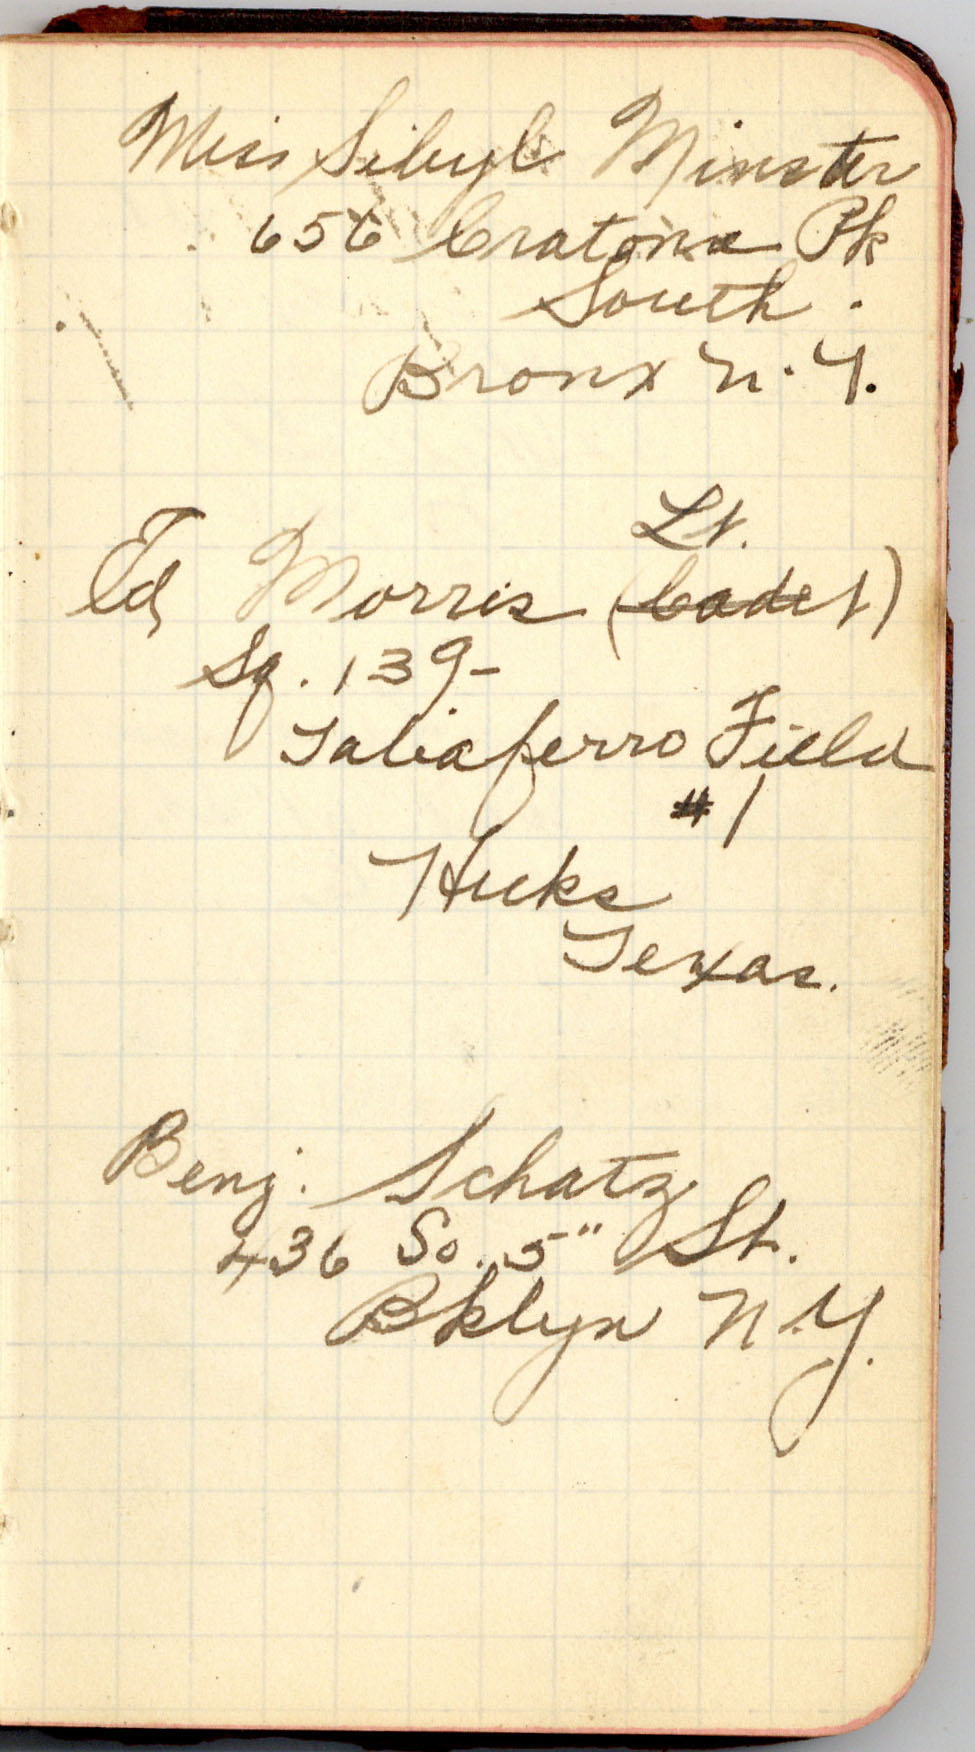 Miss Sibyl Minster
656 Cratona Pk
South.
Bronx N.Y.
Lt.
Ed Morris (Cadet)
Sq. 139-
Taliaferro Field
#1
Hicks
Texas.
Benj. Schatz
436 So. 5" St.
Bklyn N.Y.